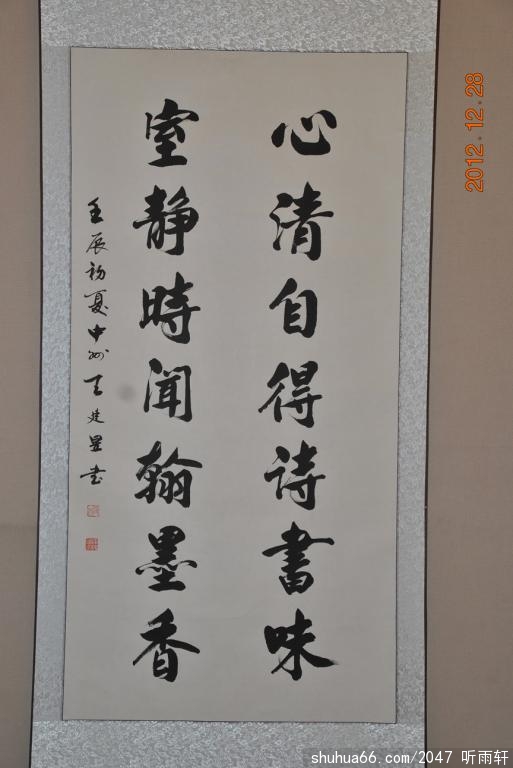 心清自得诗書味
室静時闻翰墨香
壬辰初夏中州王建星书
2012.12.28
shuhua66.com/2047 听雨轩